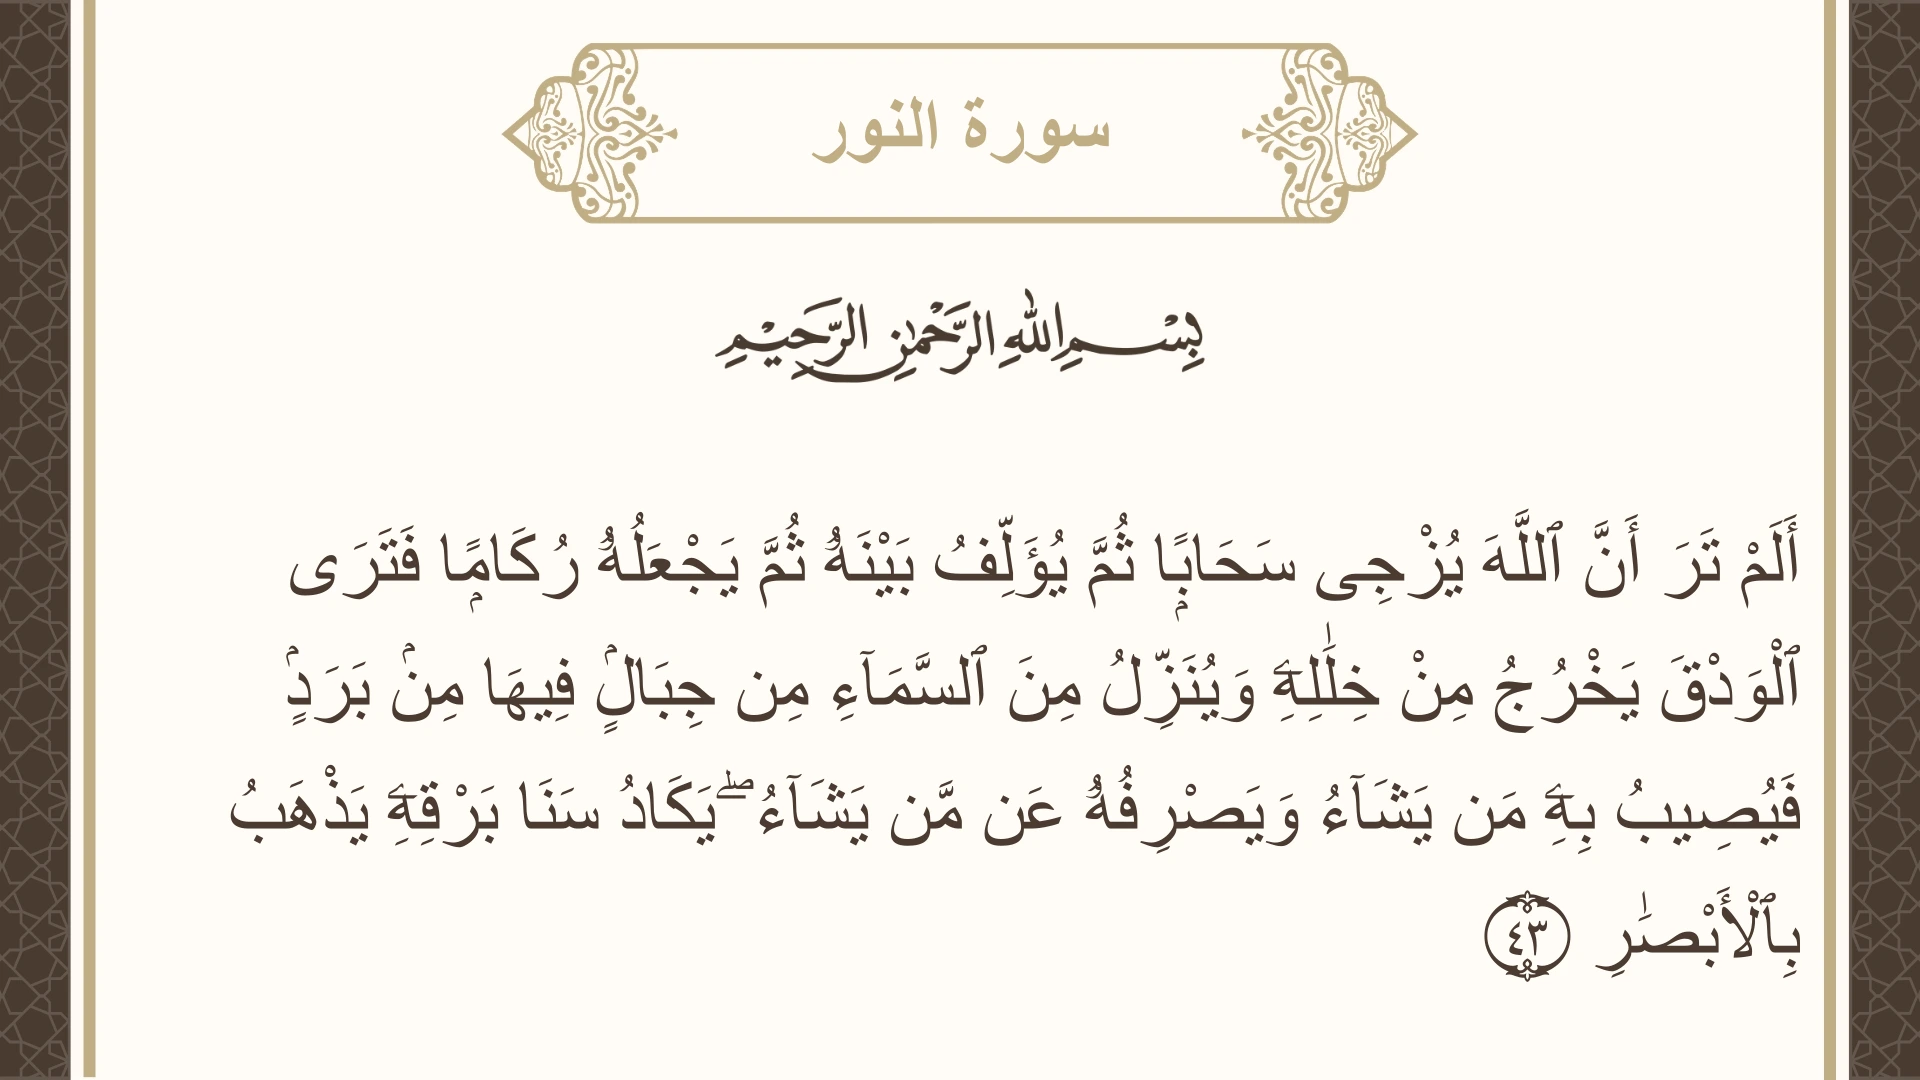 سورة النور
بِسْمِ اللهِ الرَّحْمٰنِ الرَّحِيْمِ
أَلَمْ تَرَ أَنَّ ٱللَّهَ يُزْجِى سَحَابًۭا ثُمَّ يُؤَلِّفُ بَيْنَهُۥ ثُمَّ يَجْعَلُهُۥ رُكَامًۭا فَتَرَى
ٱلْوَدْقَ يَخْرُجُ مِنْ خِلَـٰلِهِۦ وَيُنَزِّلُ مِنَ ٱلسَّمَآءِ مِن جِبَالٍۢ فِيهَا مِنۢ بَرَدٍۢ
فَيُصِيبُ بِهِۦ مَن يَشَآءُ وَيَصْرِفُهُۥ عَن مَّن يَشَآءُ ۖ يَكَادُ سَنَا بَرْقِهِۦ يَذْهَبُ
بِٱلْأَبْصَـٰرِ ٤٣